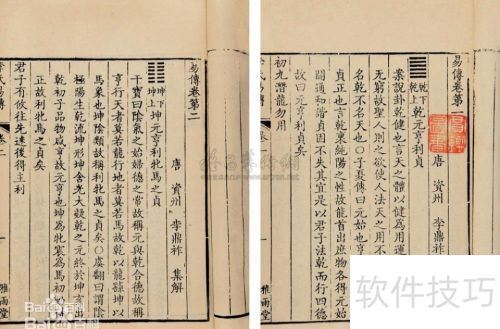 易傳卷第
唐 資州 李鼎祚
乾下
乾上
乾元亨利貞
案說卦乾健也言天之體以健為用運
无窮故聖人則之欲使人法天之用不
名乾不名天也子夏傳曰元始也亨
貞正也言乾稟純陽之性故能首出庶物各得元始
開通和諧貞不失其宜是以君子法乾而行四德
故曰元亨利貞矣
初九潛龍勿用
易傳卷第二
唐 資州 李鼎祚 集解
坤下
坤上
坤元亨利牝馬之貞
干寶曰陰氣之始婦德之常故稱元與乾合德故稱
亨行天者莫若龍行地者莫若馬故乾以龍繇坤以
馬象也坤陰類故稱利牝馬之貞矣○虞翻曰謂陰
極陽生乾流坤形坤含光大凝乾之元終於坤
乾初子品物咸亨故元亨也坤為牝震為馬初動
正故利牝馬之貞矣
君子有攸往先迷後得主利
氏易傳
卷二
雅雨堂
百科
软件技巧